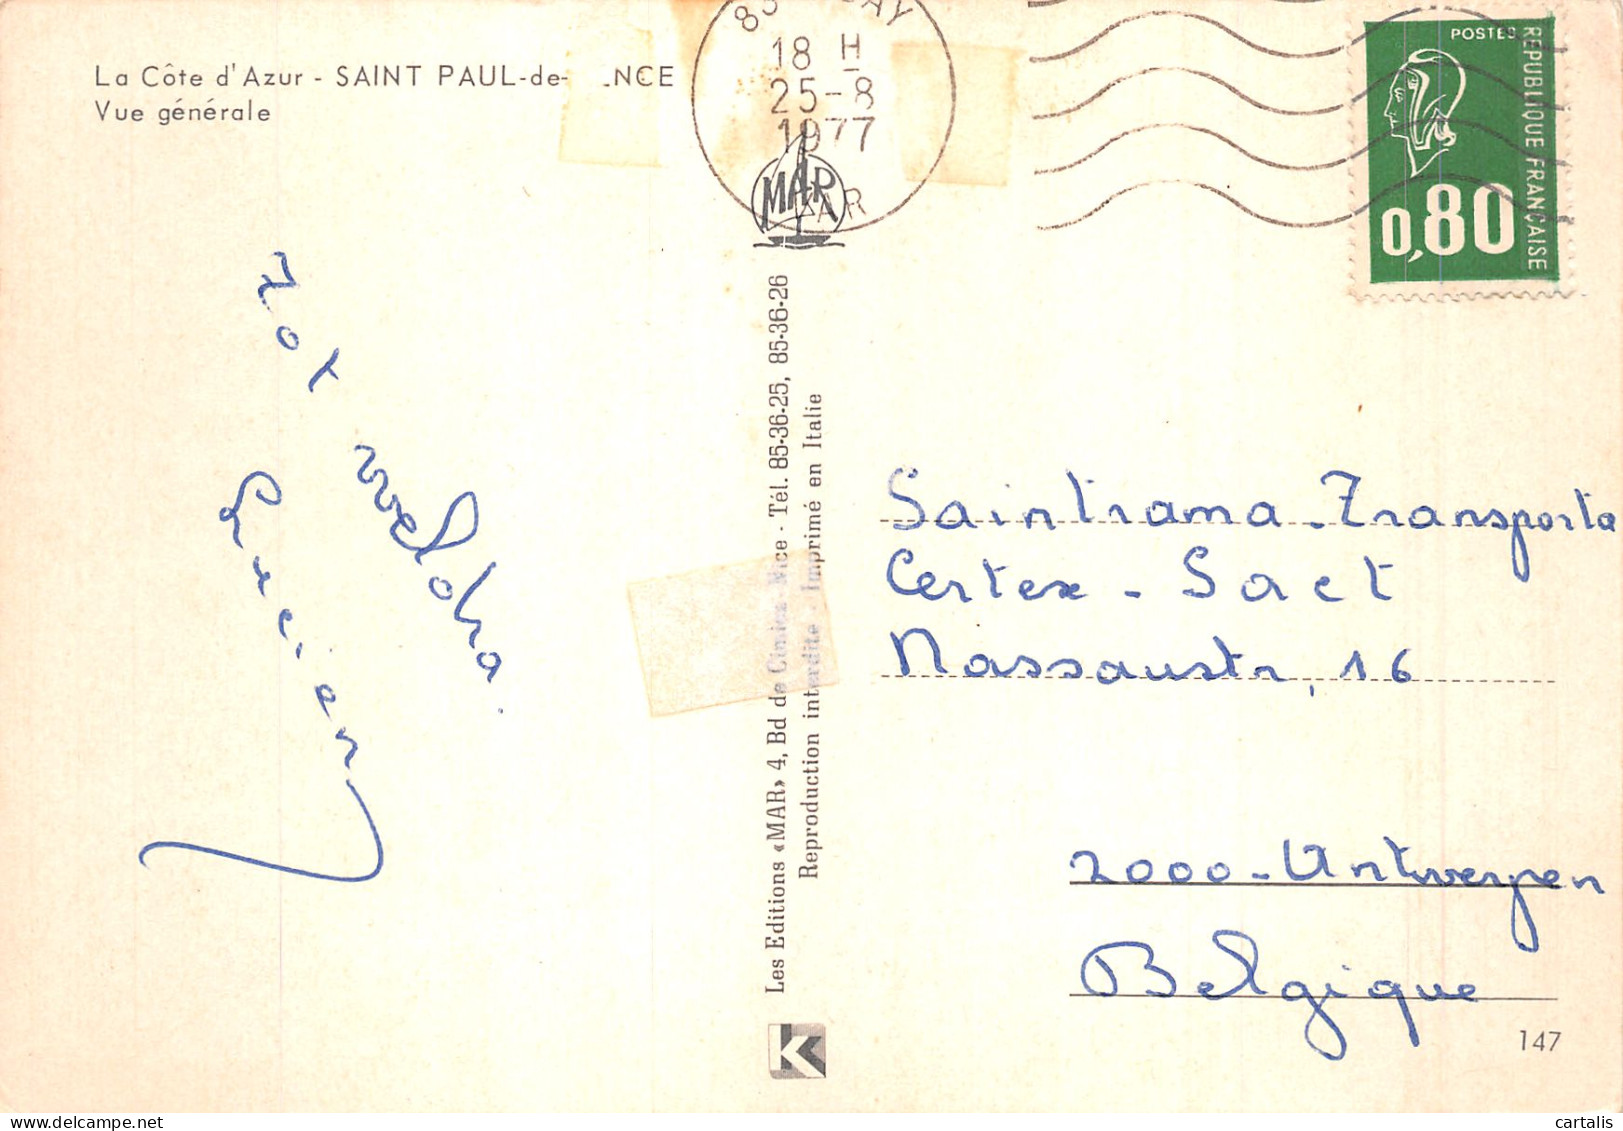 La Côte d'Azur - SAINT PAUL-de- ENCE
Vue générale
18 H
25-8
1977
VAR
MAR
POSTES
REPUBLIQUE FRANÇAISE
0,80
Tot weldra.
Lucien
Les Editions «MAR» 4, Bd de Cimiez - Nice - Tél. 85-36-25, 85-36-26
Reproduction interdite - Imprimé en Italie
Saintrama-Transporta
Certex - Sact
Nassaustr, 16
2000-Antwerpen
Belgique
K
147
cartalis